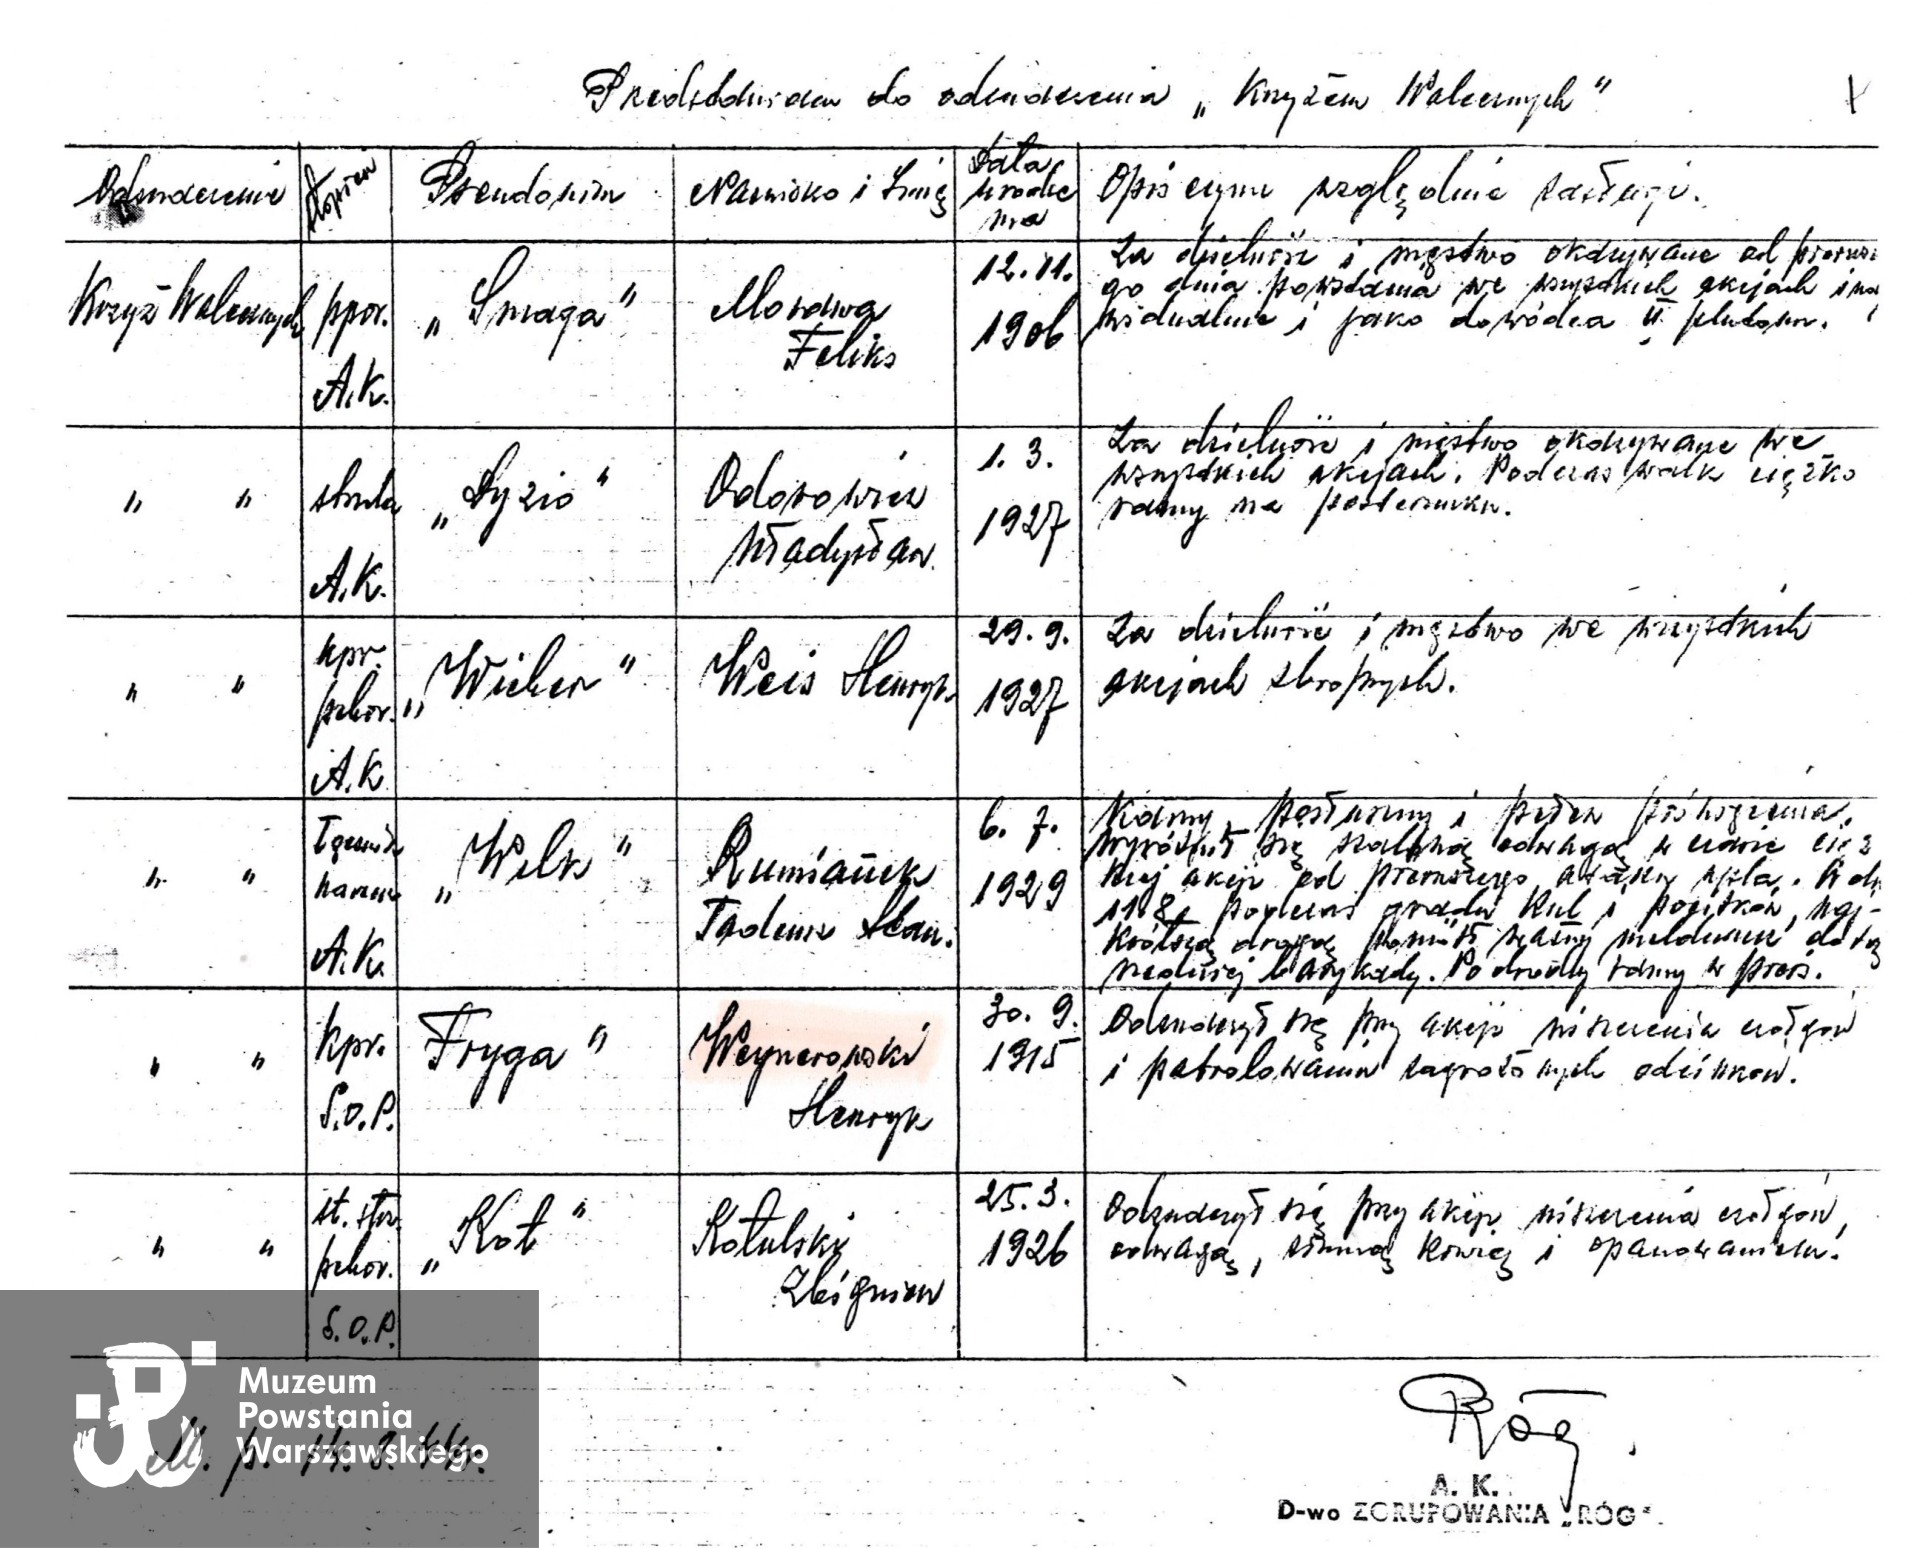 Przedstawiam do odznaczenia „Krzyżem Walecznych"
Odznaczenie
Stopień
Pseudonim
Nazwisko i Imię
Data
urodze
nia
Opis czynu względnie zasługi.
Krzyż Walecznych
ppor.
A.K.
„Smaga"
Morawa
Feliks
12.11.
1906
Za dzielność i męstwo okazywane od pierwsze
go dnia powstania we wszystkich akcjach i
jako dowódca II plutonu.
" "
A.K.
„Dyzio"
Odorowicz
Władysław
1. 3.
1927
Za dzielność i męstwo okazywane we
wszystkich akcjach. Podczas walk ciężko
ranny na posterunku.
" "
kpr.
pchor.
A.K.
„Wicher"
Weis Henryk
29. 9.
1927
Za dzielność i męstwo we wszystkich
akcjach zbrojnych.
" "
A.K.
„Wilk"
Rumianek
Tadeusz Stan.
6. 7.
1929
Karny, posłuszny i pełen poświęcenia.
Wyróżnił się szaloną odwagą w czasie cięż
kiej akcji od pierwszego
11.8. podczas gradu kul i pocisków, naj-
krótszą drogą ważny meldunek do
barykady. Po drodze ranny w pierś.
" "
kpr.
S.O.P.
Fryga"
Weynerowski
Henryk
30. 9.
1915
Odznaczył się przy akcji niszczenia czołgów
i patrolowaniu zagrożonych odcinków.
" "
st. strz.
pchor.
S.O.P.
„Kot"
Kotulski
Zbigniew
25. 3.
1926
Odznaczył się przy akcji niszczenia czołgów,
odwagą, zimną krwią i opanowaniem.
M. p.
Muzeum
Powstania
Warszawskiego
Róg
A. K.
D-wo ZGRUPOWANIA „RÓG".